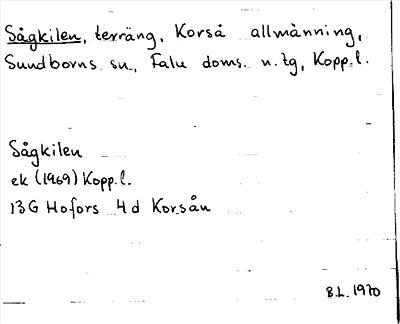 Sågkilen, terräng, Korså allmänning,
Sundborns sn, Falu doms. n. tg, Kopp. l.
Sågkilen
ek (1969) Kopp. l.
13G Hofors 4d Korsån
B.L. 1970